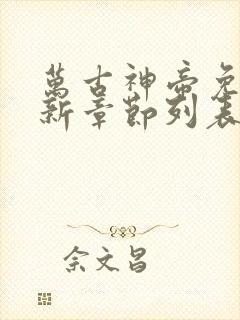 萬古神帝免
新章節列表
佘文昌